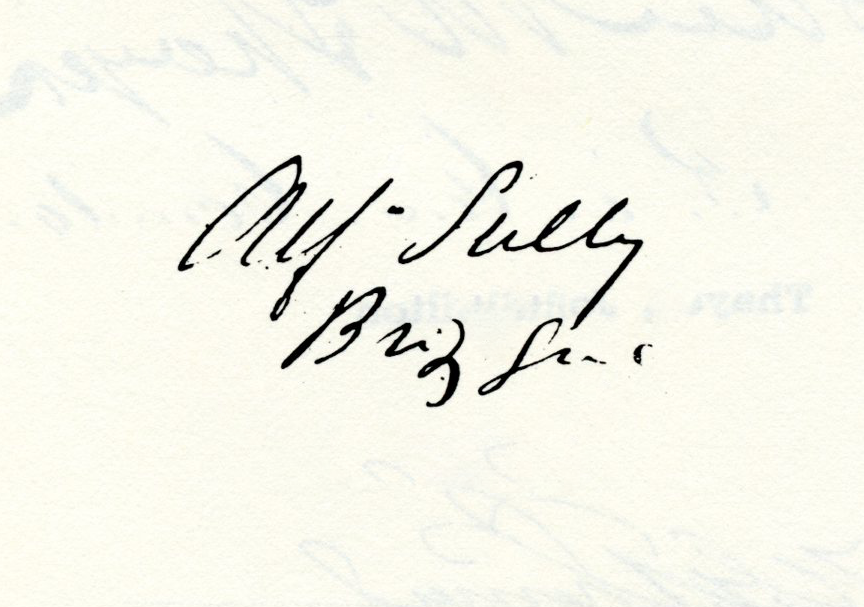 Alf Sully
Brig Gen